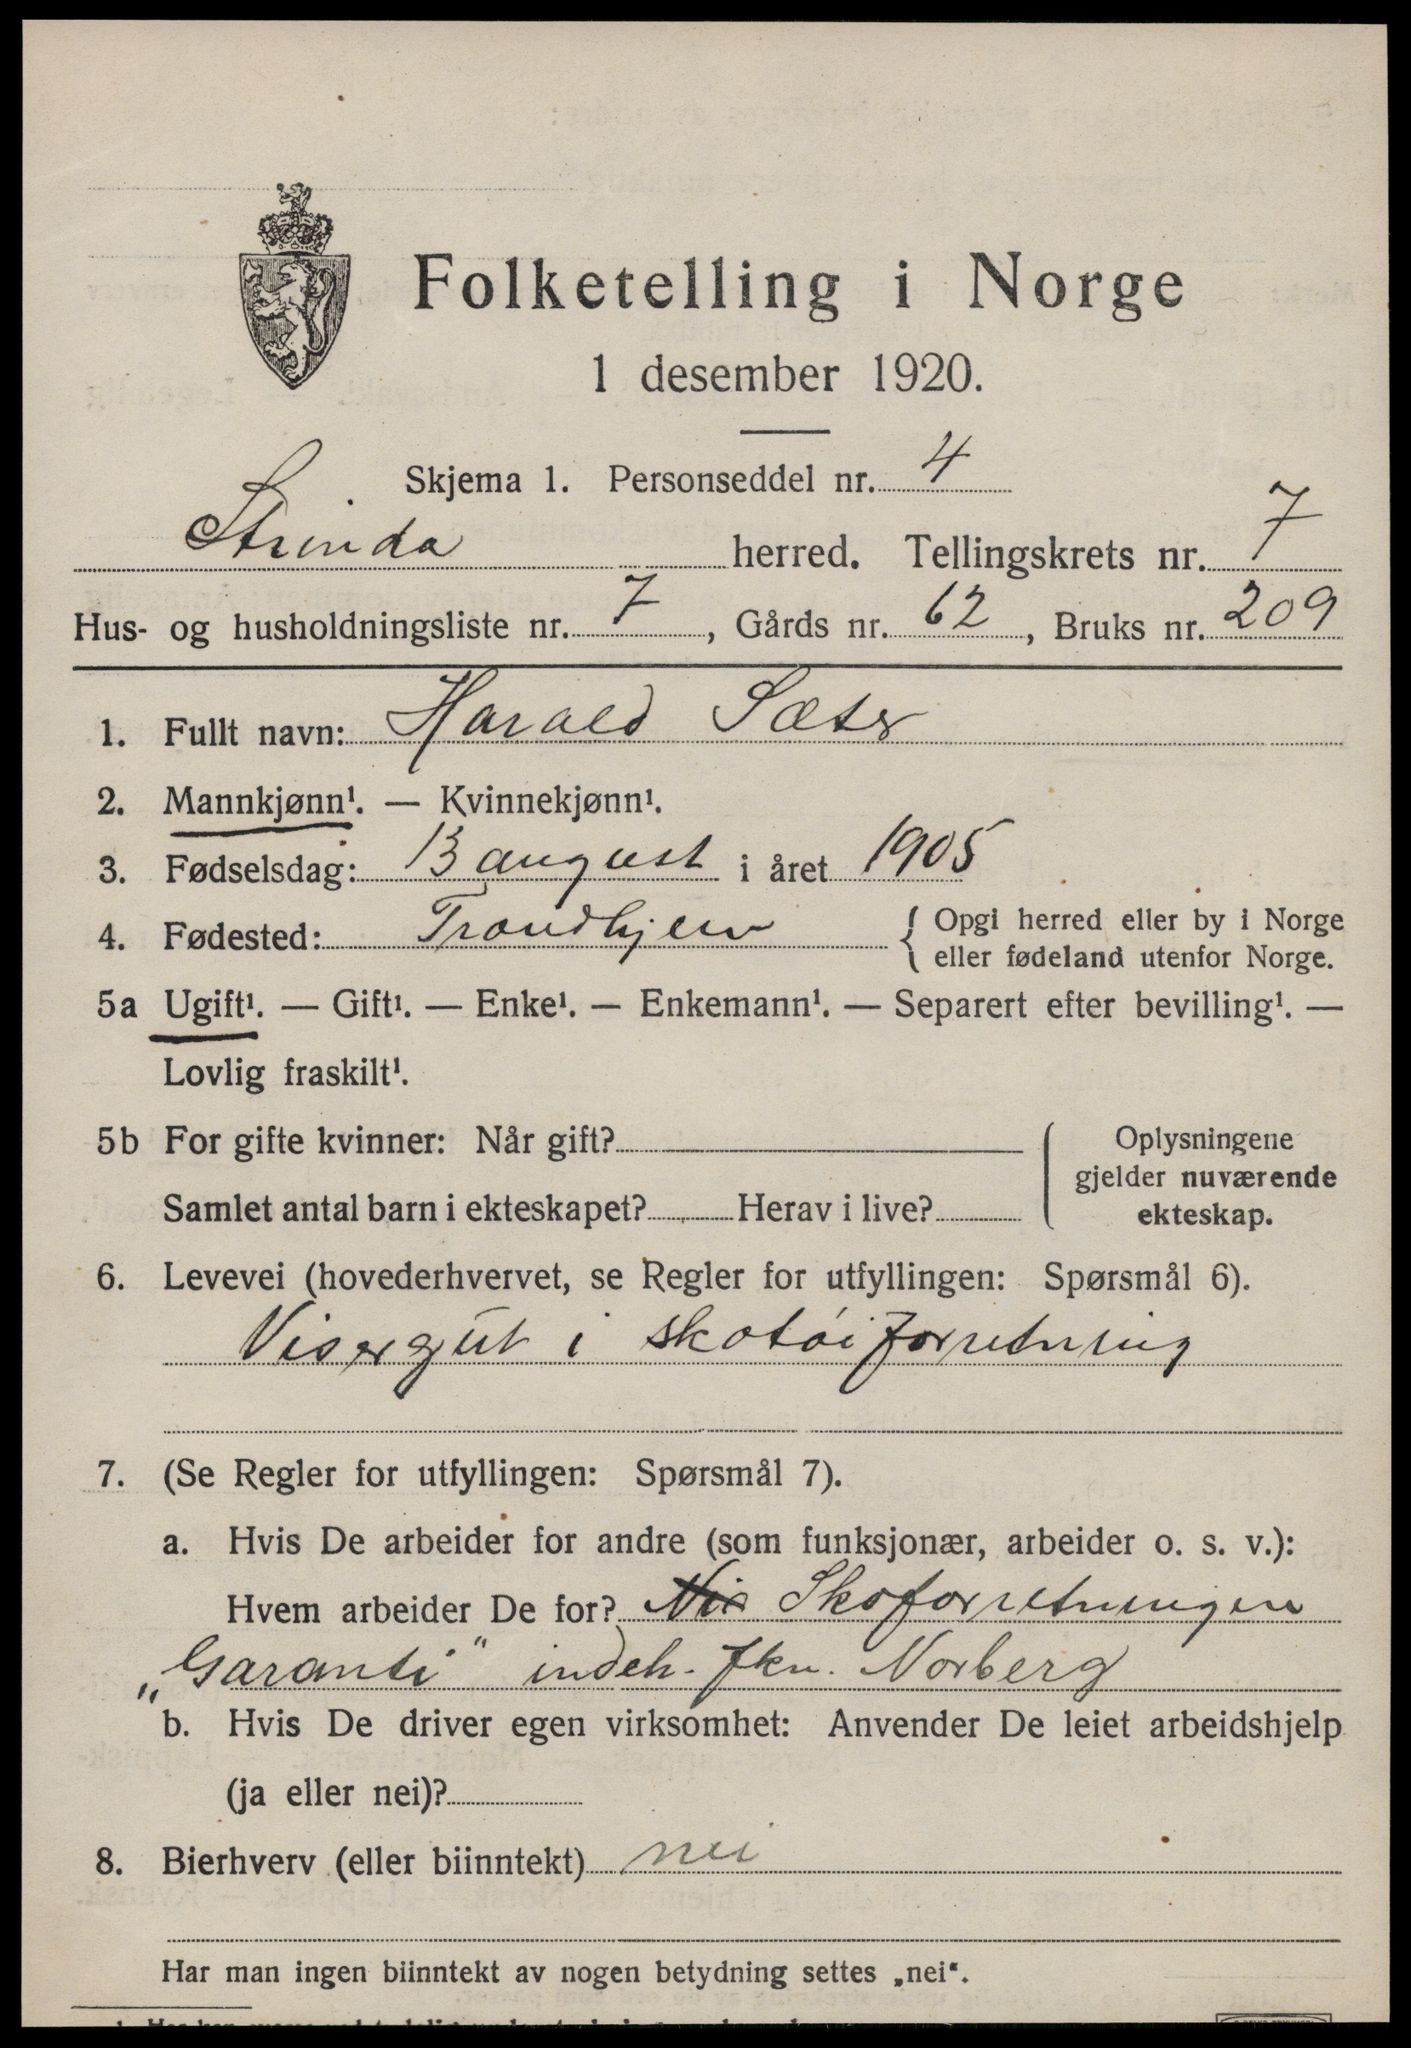 Folketelling i Norge
1 desember 1920.
Skjema 1. Personseddel nr. 4
Strinda herred. Tellingskrets nr. 7
Hus- og husholdningsliste nr. 7, Gårds nr. 62, Bruks nr. 209
1. Fullt navn: Harald Sæter
2. Mannkjønn¹. — Kvinnekjønn¹.
3. Fødselsdag: 13 august i året 1905
4. Fødested: Trondhjem { Opgi herred eller by i Norge
eller fødeland utenfor Norge.
5a Ugift¹. — Gift¹. — Enke¹. — Enkemann¹. — Separert efter bevilling¹. —
Lovlig fraskilt¹.
5b For gifte kvinner: Når gift?
Samlet antal barn i ekteskapet? Herav i live?
Oplysningene
gjelder nuværende
ekteskap.
6. Levevei (hovederhvervet, se Regler for utfyllingen: Spørsmål 6).
Visergut i skotøiforretning
7. (Se Regler for utfyllingen: Spørsmål 7).
a. Hvis De arbeider for andre (som funksjonær, arbeider o. s. v.):
Hvem arbeider De for? Skoforretningen
„Garanti" indeh. fkn. Norberg
b. Hvis De driver egen virksomhet: Anvender De leiet arbeidshjelp
(ja eller nei)?
8. Bierhverv (eller biinntekt) nei
Har man ingen biinntekt av nogen betydning settes „nei".